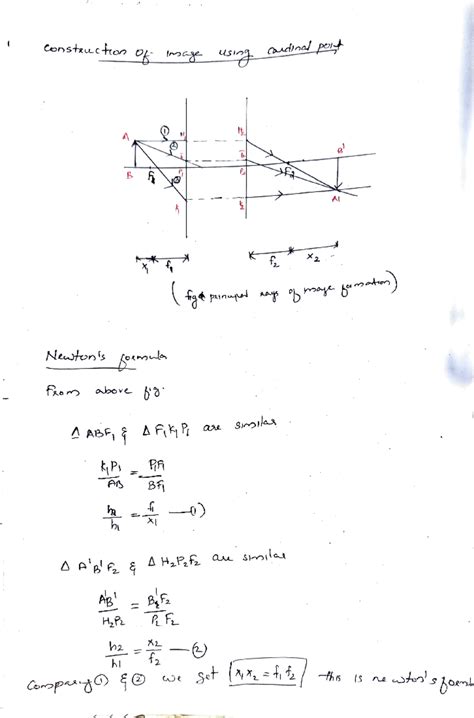 1
construction of image using cardinal point
A 1 H1 H2
2
B F1 P1 P2 F2 B'
3
K1 K2 A1
x1 f1 f2 x2
(fig principal rays of image formation)
Newton's formula
From above fig.
Δ ABF1 & Δ F1K1P1 are similar
K1P1/AB = P1F1/BF1
h2/h1 = f1/x1 —(1)
Δ A'B'F2 & Δ H2P2F2 are similar
A'B'/H2P2 = B'F2/P2F2
h2/h1 = x2/f2 —(2)
Comparing (1) & (2) we get x1x2 = f1f2 this is newton's formula